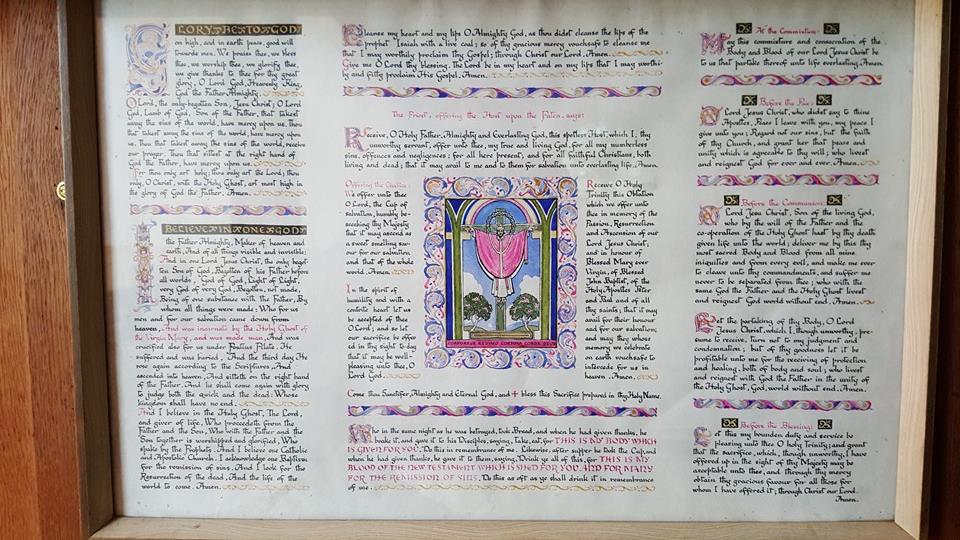 GLORY BE TO GOD
on high, and in earth peace, good will
towards men. We praise thee, we bless
thee, we worship thee, we glorify thee,
we give thanks to thee for thy great
glory, O Lord God, Heavenly King,
God the Father Almighty.
O Lord, the only-begotten Son, Jesu Christ; O Lord
God, Lamb of God, Son of the Father, that takest
away the sins of the world, have mercy upon us. Thou
that takest away the sins of the world, have mercy upon
us. Thou that takest away the sins of the world, receive
our prayer. Thou that sittest at the right hand of
God the Father, have mercy upon us.
For thou only art holy; thou only art the Lord; thou
only, O Christ, with the Holy Ghost, art most high in
glory of God the Father. Amen.
I BELIEVE IN ONE GOD
the Father Almighty, Maker of heaven and
earth, And of all things visible and invisible:
And in one Lord Jesus Christ, the only begot-
ten Son of God, Begotten of his Father before
all worlds, God of God, Light of Light,
very God of very God, Begotten, not made,
Being of one substance with the Father, By
whom all things were made: Who for us
men and for our salvation came down from
heaven, And was incarnate by the Holy Ghost of
the Virgin Mary, and was made man, And was
crucified also for us under Pontius Pilate. He
suffered and was buried, And the third day He
rose again according to the Scriptures, And
ascended into heaven, And sitteth on the right hand
of the Father. And he shall come again with glory
to judge both the quick and the dead: Whose
kingdom shall have no end.
And I believe in the Holy Ghost, The Lord,
and giver of life, Who proceedeth from the
Father and the Son, Who with the Father and the
Son together is worshipped and glorified, Who
spake by the Prophets. And I believe one Catholic
and Apostolic Church. I acknowledge one Baptism
for the remission of sins. And I look for the
Resurrection of the dead, And the life of the
world to come. Amen.
Cleanse my heart and my lips O Almighty God, as thou didst cleanse the lips of the
prophet Isaiah with a live coal; so of thy gracious mercy vouchsafe to cleanse me
that I may worthily proclaim thy Gospel; through Christ our Lord. Amen.
Give me O Lord thy blessing. The Lord be in my heart and on my lips that I may worthi-
ly and fitly proclaim His Gospel. Amen.
The Priest, offering the Host upon the Paten, says:
Receive, O Holy Father, Almighty and Everlasting God, this spotless Host, which I, thy
unworthy servant, offer unto thee, my true and living God, for all my numberless
sins, offences and negligences; for all here present, and for all faithful Christians, both
living and dead; that it may avail to me and to them for salvation unto everlasting life. Amen.
Offering the Chalice:
We offer unto thee
O Lord, the Cup of
salvation, humbly be-
seeching thy Majesty
that it may ascend as
a sweet smelling sav-
our for our salvation
and that of the whole
world. Amen.
In the spirit of
humility and with a
contrite heart let us
be accepted of thee
O Lord; and so let
our sacrifice be offer
ed in thy sight to day
that it may be well-
pleasing unto thee, O
Lord God.
CORPOREUS REDIMO CORPORA CORDA DEUS
Receive O Holy
Trinity this Oblation
which we offer unto
thee in memory of the
Passion, Resurrection
and Ascension of our
Lord Jesus Christ;
and in honour of
Blessed Mary ever
Virgin, of Blessed
John Baptist, of the
Holy Apostles Peter
and Paul and of all
thy saints; that it may
avail for their honour
and for our salvation;
and may they whose
memory we celebrate
on earth vouchsafe to
intercede for us in
heaven. Amen.
Come thou Sanctifier, Almighty and Eternal God, and + bless this Sacrifice prepared in thy Holy Name.
Who in the same night as he was betrayed, took Bread, and when he had given thanks, he
brake it, and gave it to his Disciples, saying, Take, eat, for THIS IS MY BODY WHICH
IS GIVEN FOR YOU. Do this in remembrance of me. Likewise, after supper he took the Cup, and
when he had given thanks, he gave it to them, saying, Drink ye all of this, for THIS IS MY
BLOOD OF THE NEW TESTAMENT WHICH IS SHED FOR YOU, AND FOR MANY
FOR THE REMISSION OF SINS. Do this as oft as ye shall drink it in remembrance
of me.
At the Commixture:
May this commixture and consecration of the
Body and Blood of our Lord Jesus Christ be
to us that partake thereof unto life everlasting. Amen.
Before the Pax:
O Lord Jesus Christ, who didst say to thine
Apostles, Peace I leave with you, my peace I
give unto you; Regard not our sins, but the faith
of thy Church, and grant her that peace and
unity which is agreeable to thy will; who livest
and reignest God for ever and ever. Amen.
Before the Communion:
O Lord Jesus Christ, Son of the living God,
who by the will of the Father and the
co-operation of the Holy Ghost hast by thy death
given life unto the world; deliver me by this thy
most sacred Body and Blood from all mine
iniquities and from every evil, and make me ever
to cleave unto thy commandments, and suffer me
never to be separated from thee; who with the
same God the Father and the Holy Ghost livest
and reignest God world without end. Amen.
Let the partaking of thy Body, O Lord
Jesus Christ, which I, though unworthy, pre-
sume to receive, turn not to my judgment and
condemnation; but of thy goodness let it be
profitable unto me for the receiving of protection
and healing, both of body and soul; who livest
and reignest with God the Father in the unity of
the Holy Ghost, God, world without end. Amen.
Before the Blessing:
Let this my bounden duty and service be
pleasing unto thee O holy Trinity; and grant
that the sacrifice, which, though unworthy, I have
offered up in the sight of thy Majesty may be
acceptable unto thee, and through thy mercy
obtain thy gracious favour for all those for
whom I have offered it; through Christ our Lord.
Amen.